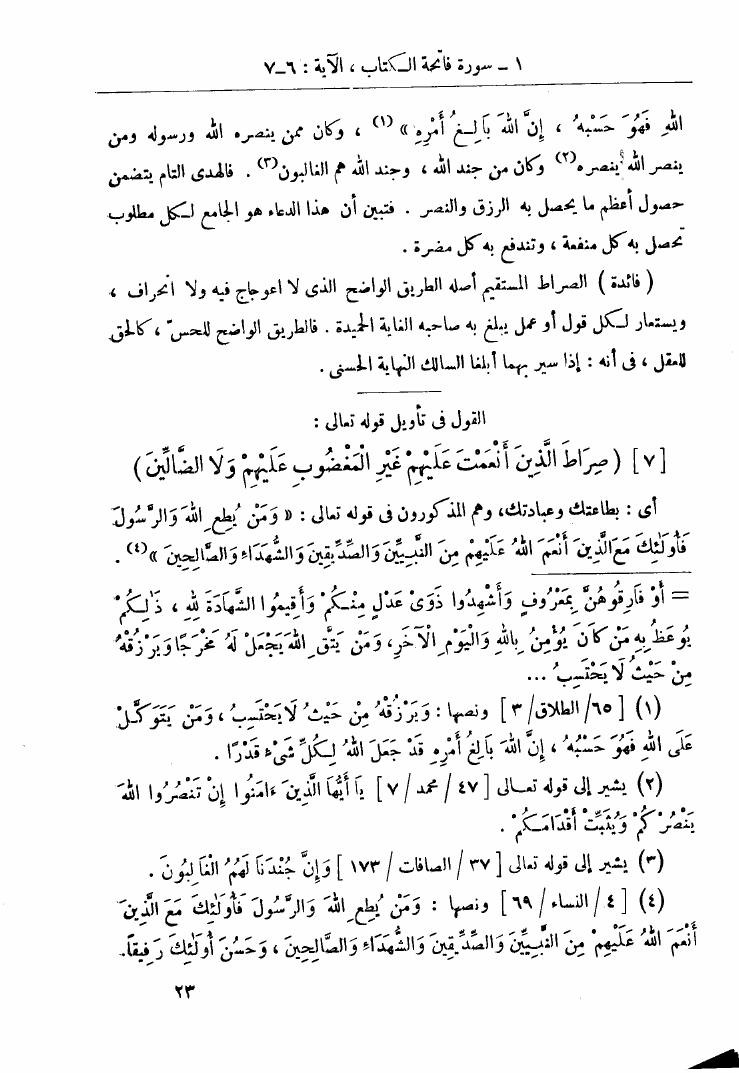 ١ – سورة فاتحة الكتاب ، الآية : ٦–٧
اللهِ فَهُوَ حَسْبُهُ ، إِنَّ اللهَ بَالِغُ أَمْرِهِ » (١) ، وكان ممن ينصره الله ورسوله ومن
ينصر الله ينصره(٢) وكان من جند الله ، وجند الله هم الغالبون(٣) . فالهدى التام يتضمن
حصول أعظم ما يحصل به الرزق والنصر . فتبين أن هذا الدعاء هو الجامع لكل مطلوب
تحصل به كل منفعة ، وتندفع به كل مضرة .
( فائدة ) الصراط المستقيم أصله الطريق الواضح الذى لا اعوجاج فيه ولا انحراف ،
ويستعار لكل قول أو عمل يبلغ به صاحبه الغاية الحميدة . فالطريق الواضح للحسّ ، كالحق
للعقل ، فى أنه : إذا سير بهما أبلغا السالك النهاية الحسنى .
القول فى تأويل قوله تعالى :
[ ٧ ] ( صِرَاطَ الَّذِينَ أَنْعَمْتَ عَلَيْهِمْ غَيْرِ الْمَغْضُوبِ عَلَيْهِمْ وَلَا الضَّالِّينَ )
أى : بطاعتك وعبادتك، وهم المذكورون فى قوله تعالى : « وَمَنْ يُطِعِ اللهَ وَالرَّسُولَ
فَأُولَٰئِكَ مَعَ الَّذِينَ أَنْعَمَ اللهُ عَلَيْهِمْ مِنَ النَّبِيِّينَ وَالصِّدِّيقِينَ وَالشُّهَدَاءِ وَالصَّالِحِينَ »(٤) .
= أَوْ فَارِقُوهُنَّ بِمَعْرُوفٍ وَأَشْهِدُوا ذَوَىْ عَدْلٍ مِنْكُمْ وَأَقِيمُوا الشَّهَادَةَ لِلهِ ، ذَٰلِكُمْ
يُوعَظُ بِهِ مَنْ كَانَ يُؤْمِنُ بِاللهِ وَالْيَوْمِ الْآخَرِ، وَمَنْ يَتَّقِ اللهَ يَجْعَلْ لَهُ مَخْرَجًا وَيَرْزُقْهُ
مِنْ حَيْثُ لَا يَحْتَسِبُ ...
(١) [ ٦٥/ الطلاق/ ٣ ] ونصها : وَيَرْزُقْهُ مِنْ حَيْثُ لَا يَحْتَسِبُ ، وَمَنْ يَتَوَكَّلْ
عَلَى اللهِ فَهُوَ حَسْبُهُ ، إِنَّ اللهَ بَالِغُ أَمْرِهِ قَدْ جَعَلَ اللهُ لِكُلِّ شَىْءٍ قَدْرًا .
(٢) يشير إلى قوله تعالى [ ٤٧ / محمد / ٧ ] يَا أَيُّهَا الَّذِينَ ءَامَنُوا إِنْ تَنْصُرُوا اللهَ
يَنْصُرْكُمْ وَيُثَبِّتْ أَقْدَامَكُمْ .
(٣) يشير إلى قوله تعالى [ ٣٧ / الصافات / ١٧٣ ] وَإِنَّ جُنْدَنَا لَهُمُ الْغَالِبُونَ .
(٤) [ ٤ / النساء / ٦٩ ] ونصها : وَمَنْ يُطِعِ اللهَ وَالرَّسُولَ فَأُولَٰئِكَ مَعَ الَّذِينَ
أَنْعَمَ اللهُ عَلَيْهِمْ مِنَ النَّبِيِّينَ وَالصِّدِّيقِينَ وَالشُّهَدَاءِ وَالصَّالِحِينَ ، وَحَسُنَ أُولَٰئِكَ رَفِيقًا.
٢٣